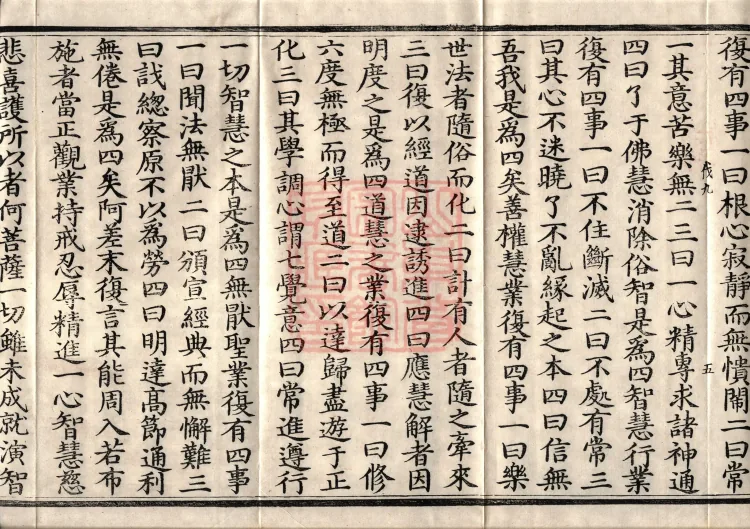 復有四事一曰根心寂靜而無憒閙二曰常
一其意苦樂無二三曰一心精專求諸神通
四曰了于佛慧消除俗智是爲四智慧行業
復有四事一曰不住斷滅二曰不處有常三
曰其心不迷曉了不亂緣起之本四曰信無
吾我是爲四矣善權慧業復有四事一曰樂
世法者隨俗而化二曰計有人者隨之牽來
三曰復以經道因逮誘進四曰應慧解者因
明度之是爲四道慧之業復有四事一曰修
六度無極而得至道二曰以達歸盡遊于正
化三曰其學調心謂七覺意四曰常進遵行
一切智慧之本是爲四無猒聖業復有四事
一曰聞法無猒二曰頒宣經典而無懈難三
曰諓緫察原不以爲勞四曰明達髙節通利
無倦是爲四矣阿差末復言其能周入若布
施者當正觀業持戒忍辱精進一心智慧慈
悲喜護所以者何菩薩一切雖未成就演智
五